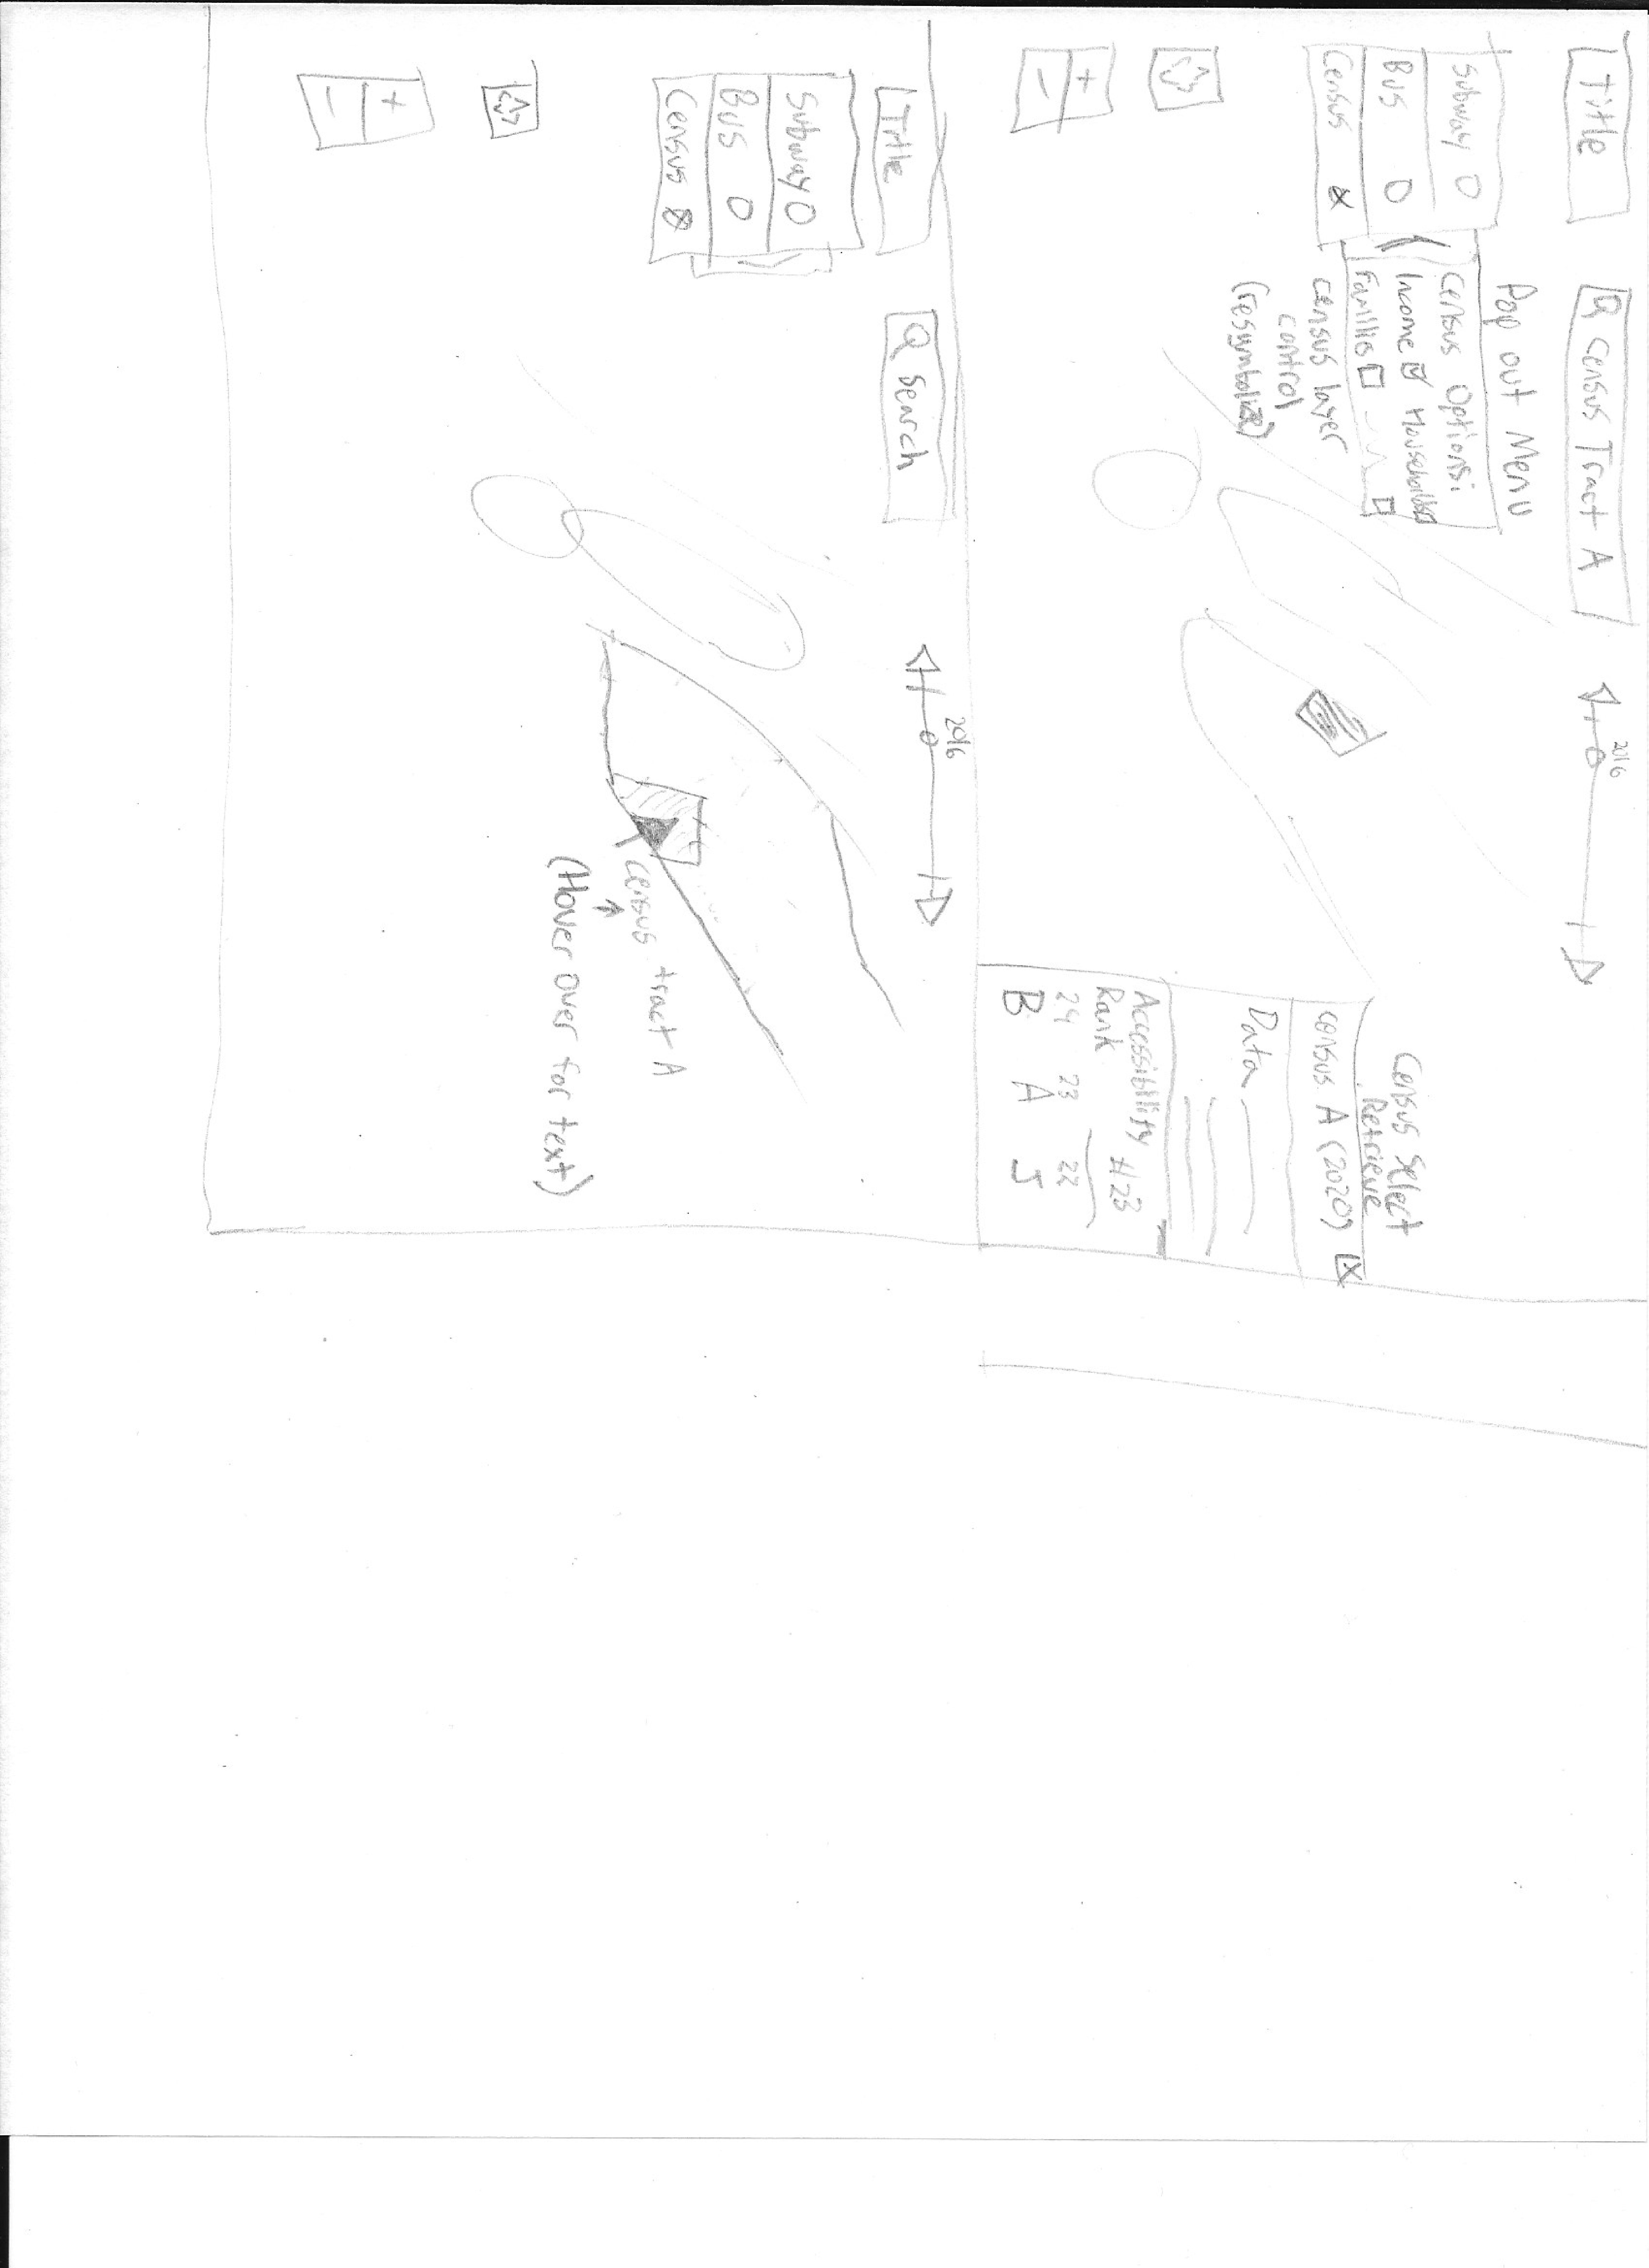 Title
Census Tract A
2016
Pop out Menu
Subway
Bus
Census
Census Options:
Income Households
Families
census layer
control
(resymbolize)
+
-
Census Select
Retrieve
census A (2020) X
Data
Accessibility
Rank #23
24 23 22
B A J
Title
Search
2016
Subway
Bus
Census
census tract A
(Hover over for text)
+
-